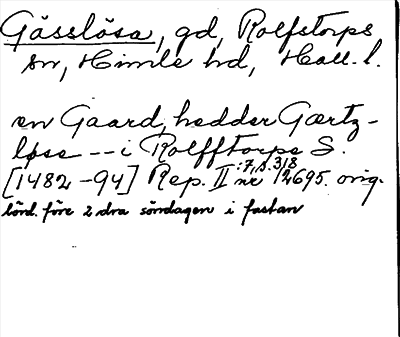 Gässlösa, gd, Rolfstorps
sn, Himle hd, Hall. l.
en Gaard, hedder Gærtz-
løse -- i Rolfftorps S.
:7, s. 318
[1482-94] Rep. II nr 12695. orig.
lörd. före 2 dra söndagen i fastan